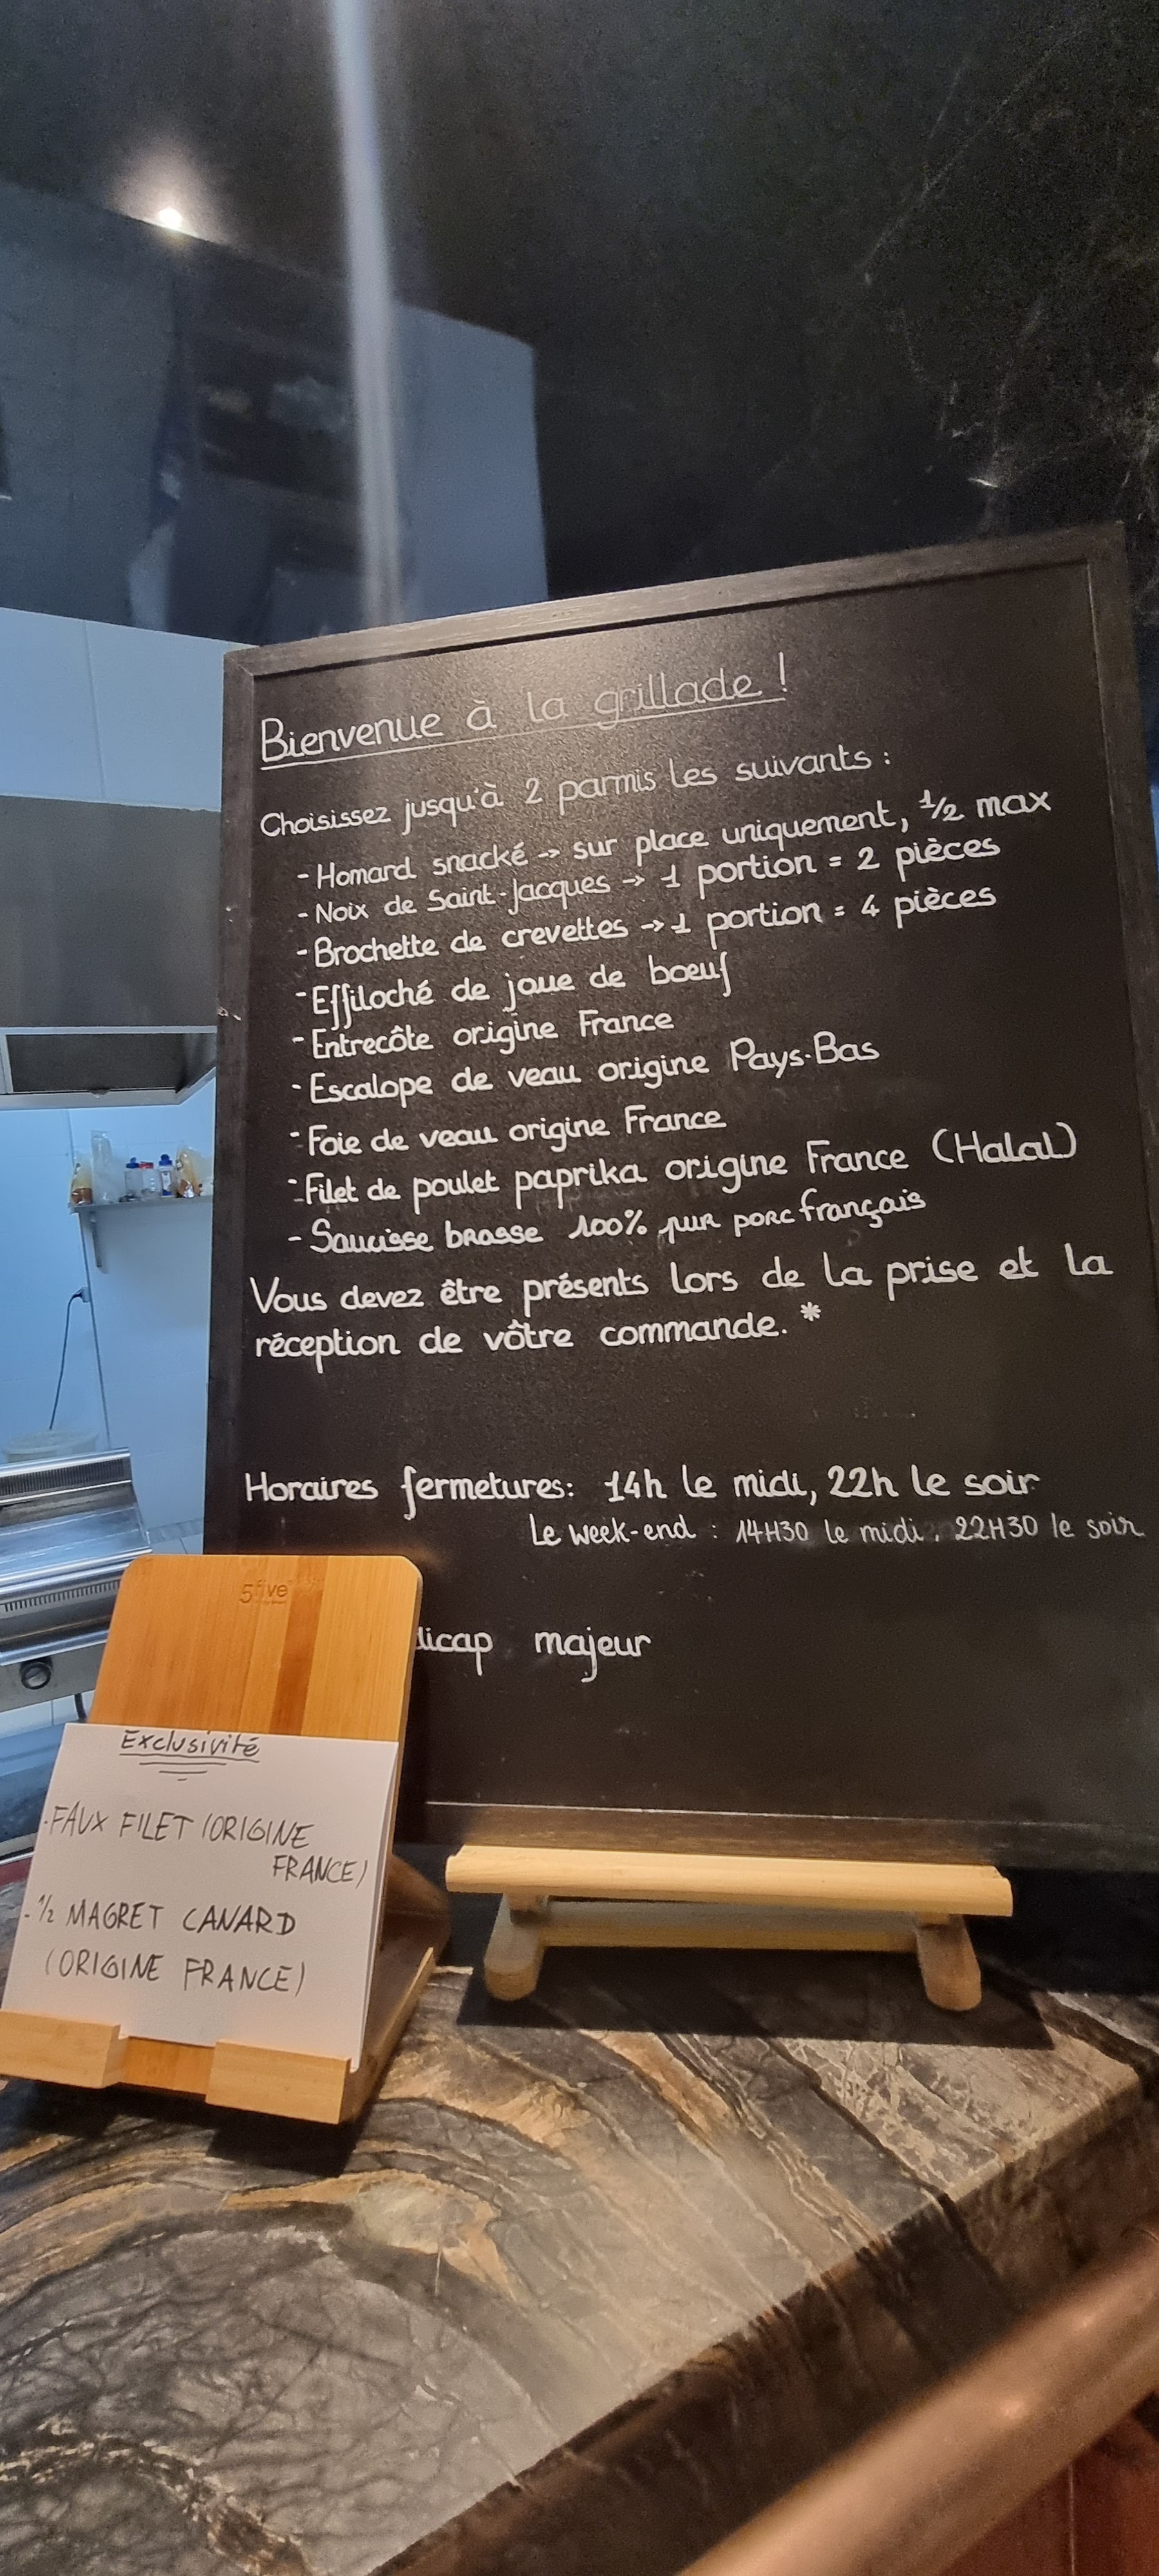 Bienvenue à la grillade !
Choisissez jusqu'à 2 parmis les suivants :
- Homard snacké -> sur place uniquement, 1/2 max
- Noix de Saint-Jacques -> 1 portion = 2 pièces
- Brochette de crevettes -> 1 portion = 4 pièces
- Effiloché de joue de boeuf
- Entrecôte origine France
- Escalope de veau origine Pays-Bas
- Foie de veau origine France
- Filet de poulet paprika origine France (Halal)
- Saucisse brasse 100% pur porc français
Vous devez être présents lors de la prise et la
réception de vôtre commande. *
Horaires fermetures: 14h le midi, 22h le soir
Le week-end : 14H30 le midi. 22H30 le soir
dicap majeur
5five
Exclusivité
- FAUX FILET (ORIGINE
FRANCE)
- 1/2 MAGRET CANARD
(ORIGINE FRANCE)